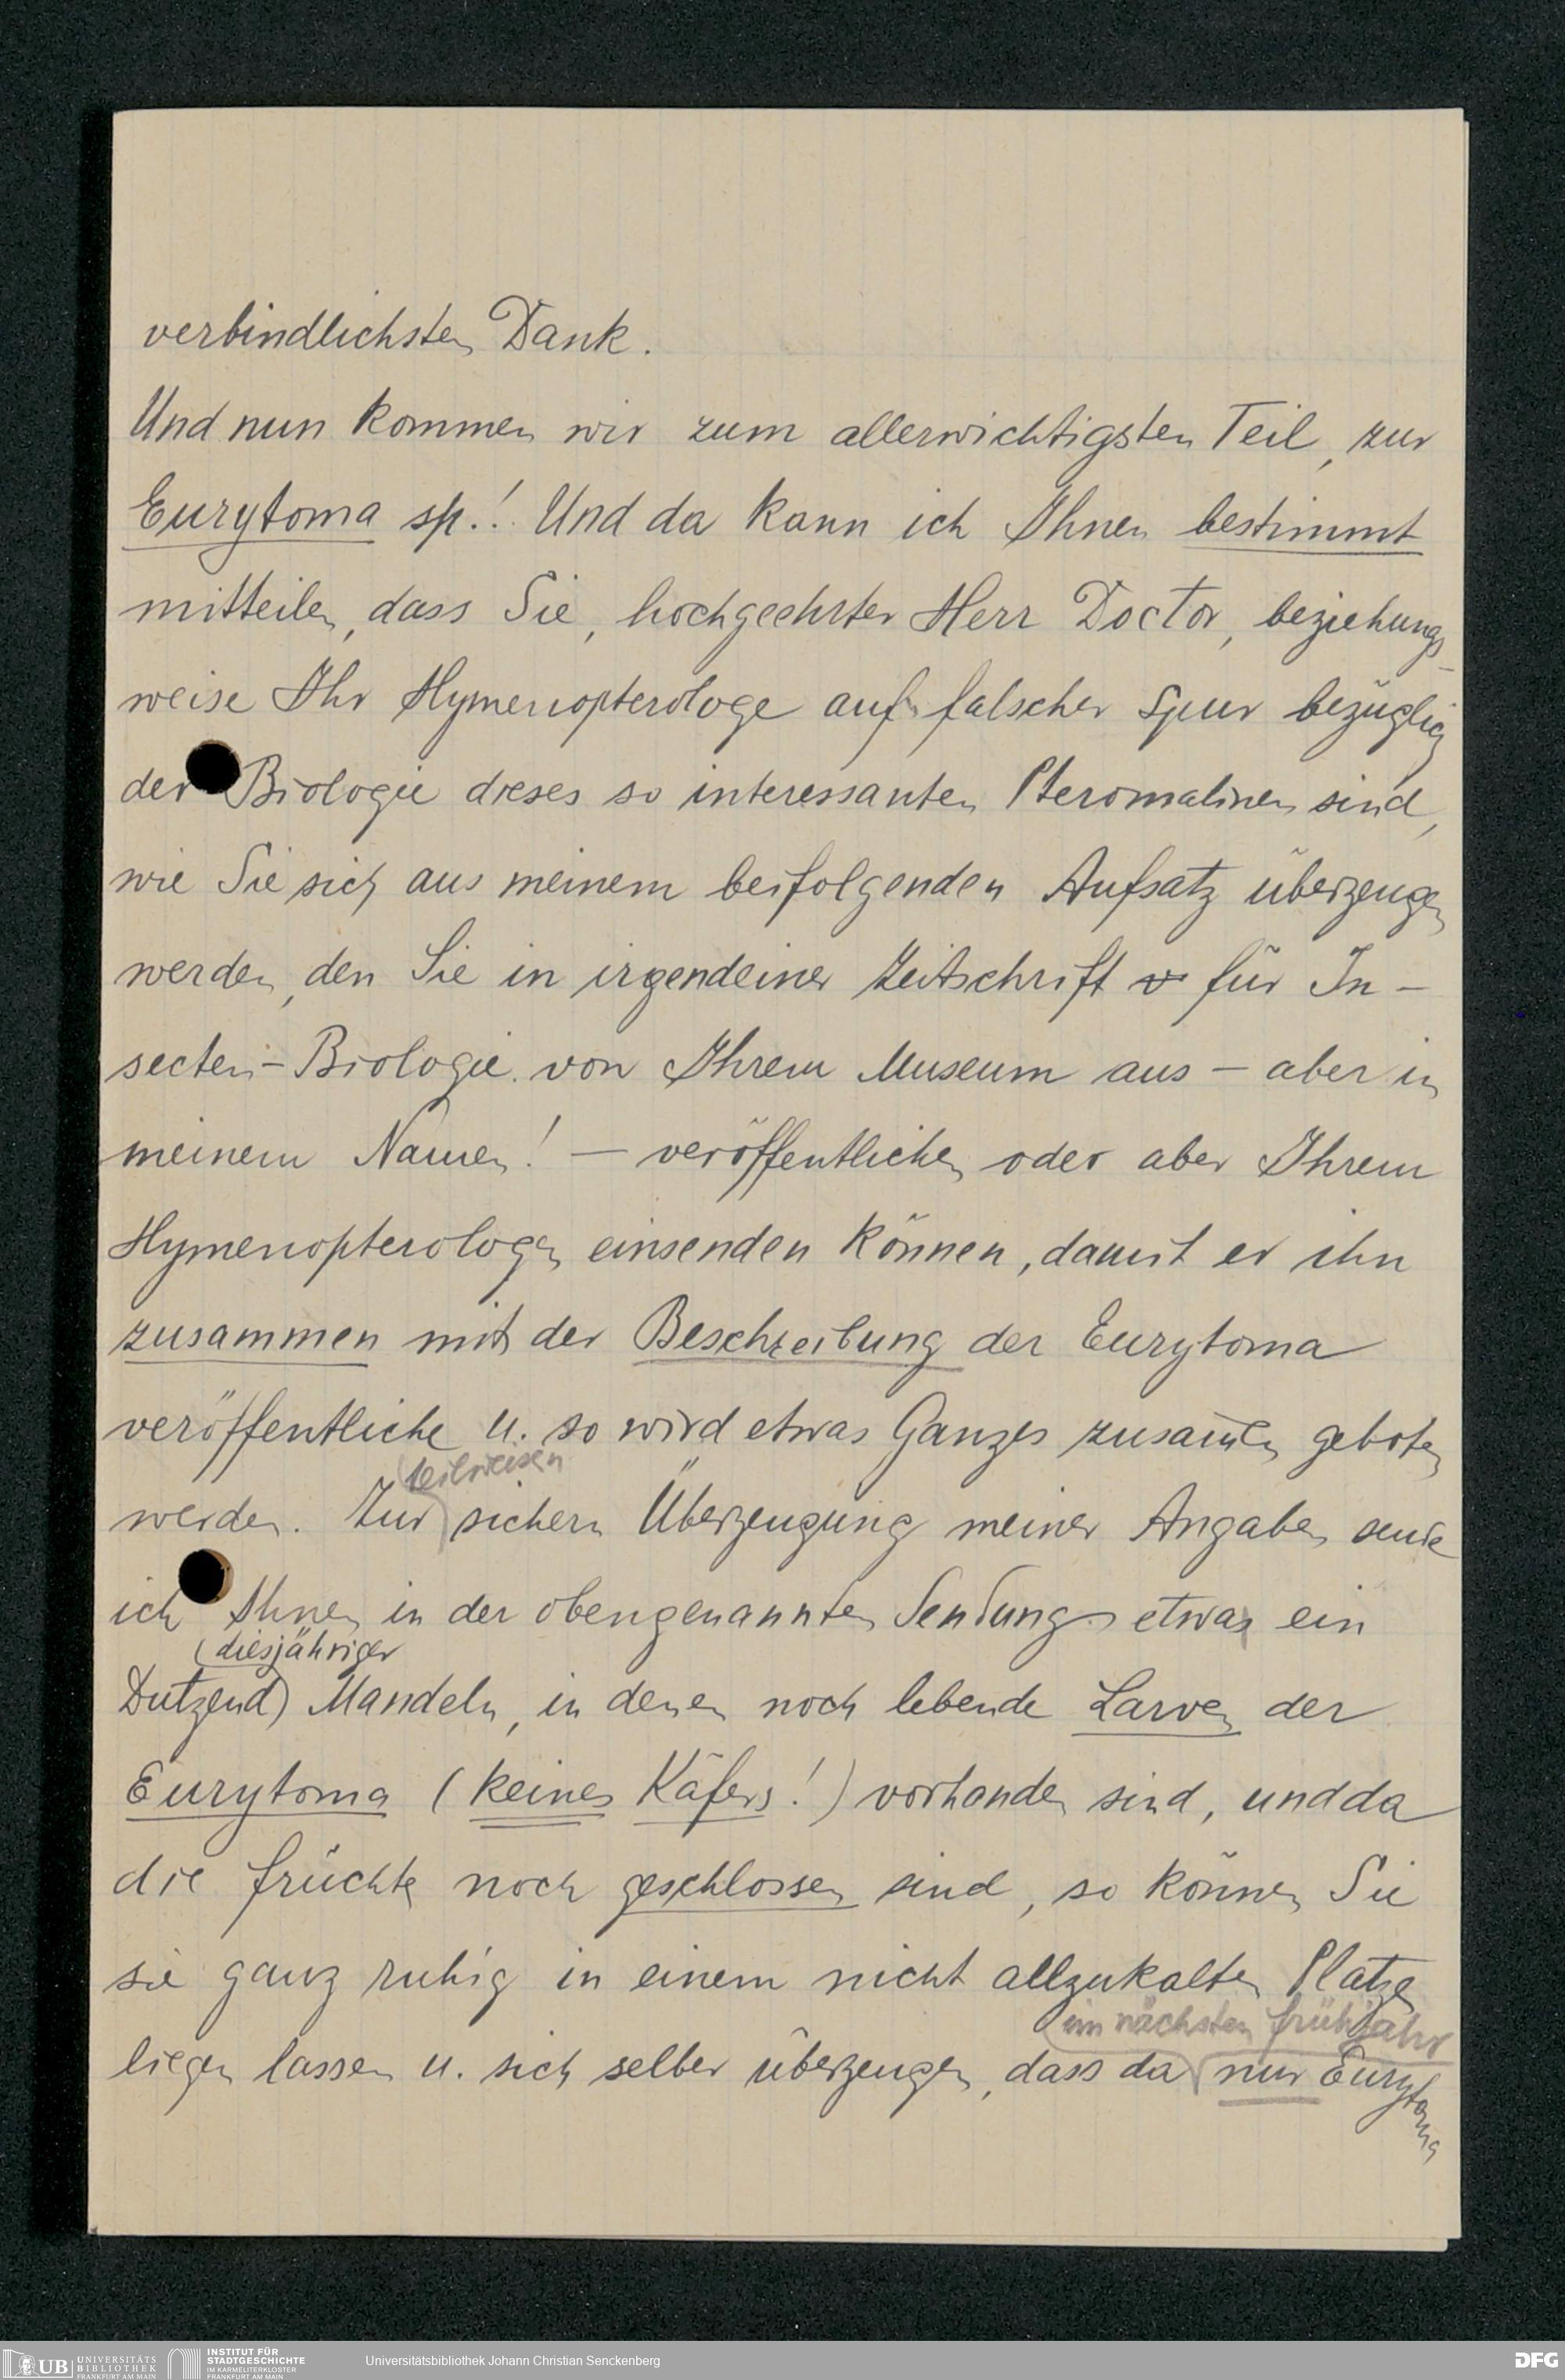 verbindlichsten Dank.
Und nun kommen wir zum allerwichtigsten Teil, zur
Eurytoma sp.! Und da kann ich Ihnen bestimmt
mitteilen, dass Sie, hochgeehrter Herr Doctor, beziehungs-
weise Ihr Hymenopterologe auf falscher Spur bezüglich
der Biologie dieses so interessanten Pteromalinen sind,
wie Sie sich aus meinem beifolgenden Aufsatz überzeugen
werden, den Sie in irgendeiner Zeitschrift für In-
secten-Biologie von Ihrem Museum aus - aber in
meinem Namen! - veröffentlichen oder aber Ihrem
Hymenopterologen einsenden können, damit er ihn
zusammen mit der Beschreibung der Eurytoma
veröffentliche u. so wird etwas Ganzes zusammen geboten
teilweisen
werden. Zur sichern Überzeugung meiner Angaben sende
ich Ihnen in der obengenannten Sendung etwa ein
(diesjähriger
Dutzend) Mandeln, in denen noch lebende Larven der
Eurytoma (keines Käfers!) vorhanden sind, und da
die Früchte noch geschlossen sind, so können Sie
sie ganz ruhig in einem nicht allzukalten Platze
im nächsten Frühjahr
liegen lassen u. sich selber überzeugen, dass da nur Eurytoma
UB UNIVERSITÄTS
BIBLIOTHEK
FRANKFURT AM MAIN
INSTITUT FÜR
STADTGESCHICHTE
IM KARMELITERKLOSTER
FRANKFURT AM MAIN
Universitätsbibliothek Johann Christian Senckenberg
DFG